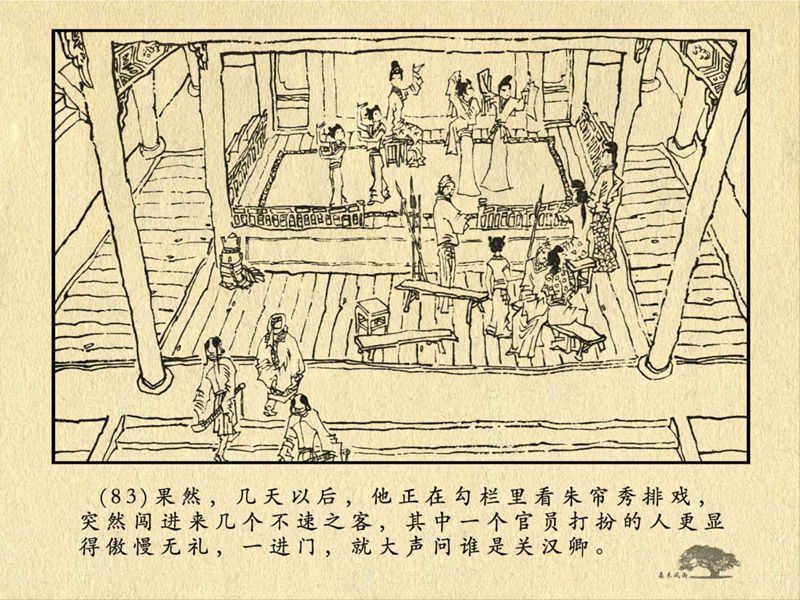 (83)果然，几天以后，他正在勾栏里看朱帘秀排戏，
突然闯进来几个不速之客，其中一个官员打扮的人更显
得傲慢无礼，一进门，就大声问谁是关汉卿。